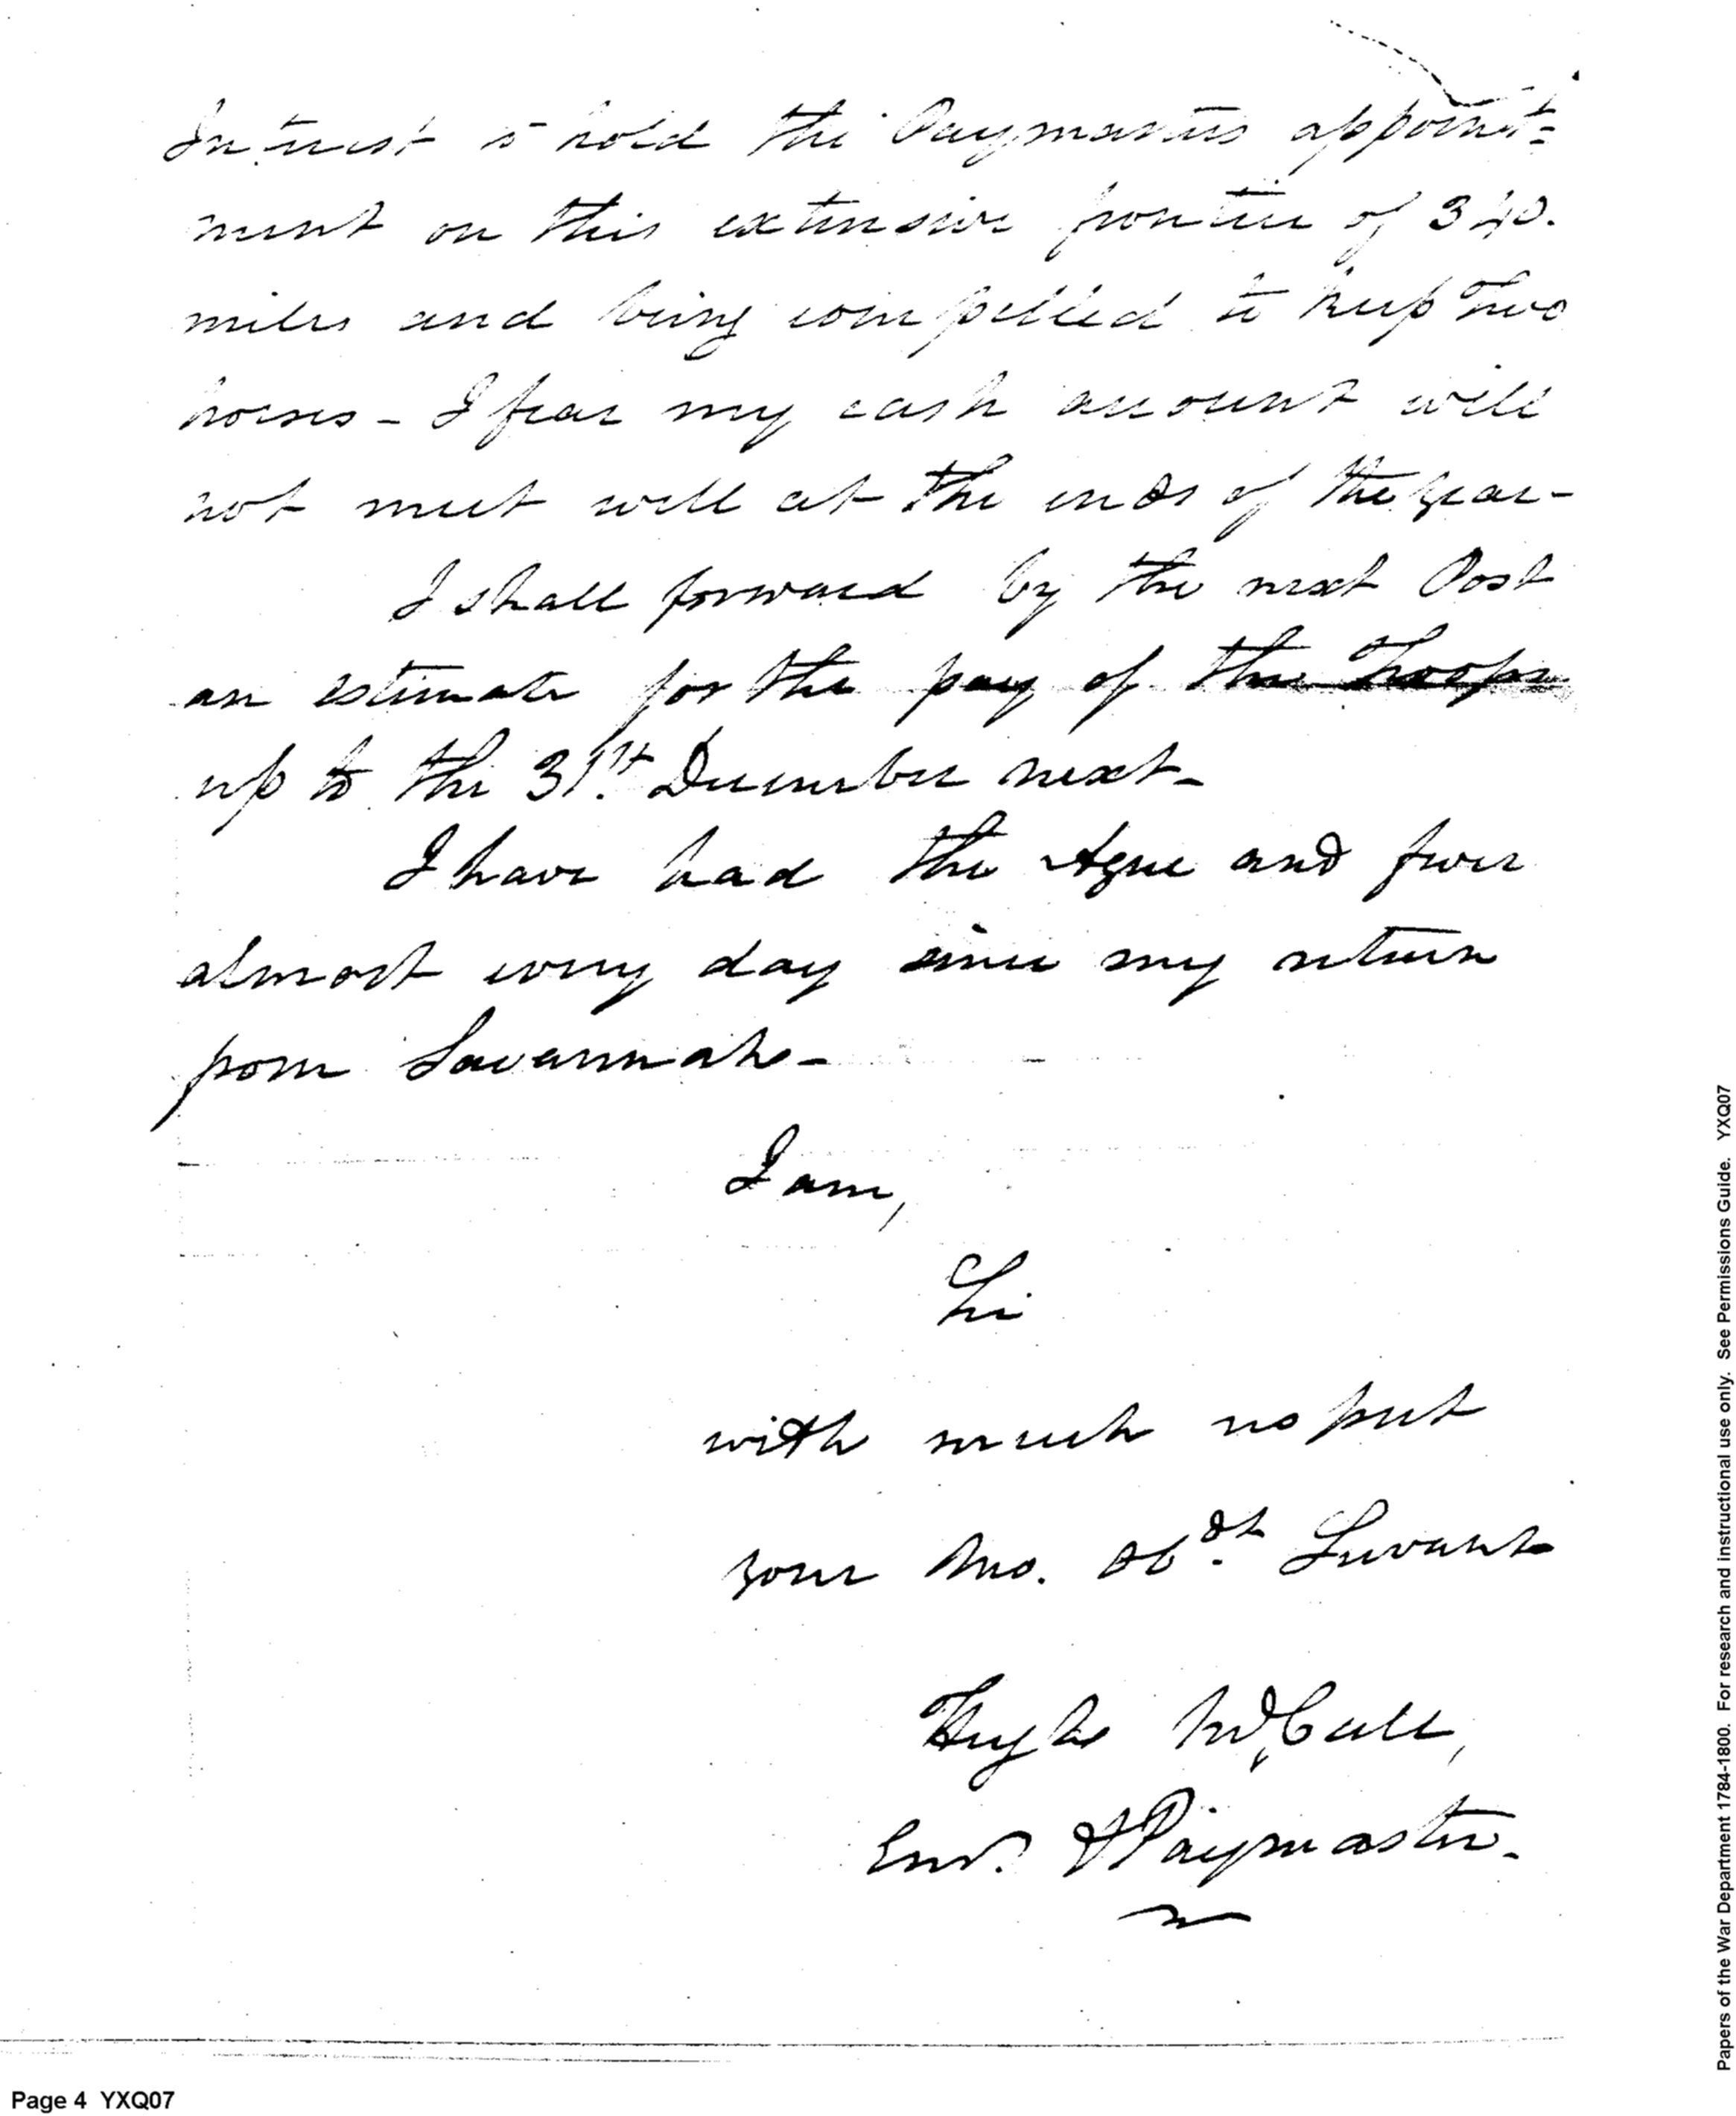 Interest to hold the Paymasters appoint=
ment on this extensive frontier of 340.
miles and being compelled to keep two
horses - I fear my cash account will
not meet well at the ends of the year -
I shall forward by the next Post
an estimate for the pay of the Troops
up to the 31st. December next -
I have had the Ague and fever
almost every day since my return
from Savannah -
I am,
Sir
with much respect
your Mo. Obdt. Servant
Hugh McCall,
Ens. & Paymaster.
Page 4 YXQ07
Papers of the War Department 1784-1800. For research and instructional use only. See Permissions Guide. YXQ07